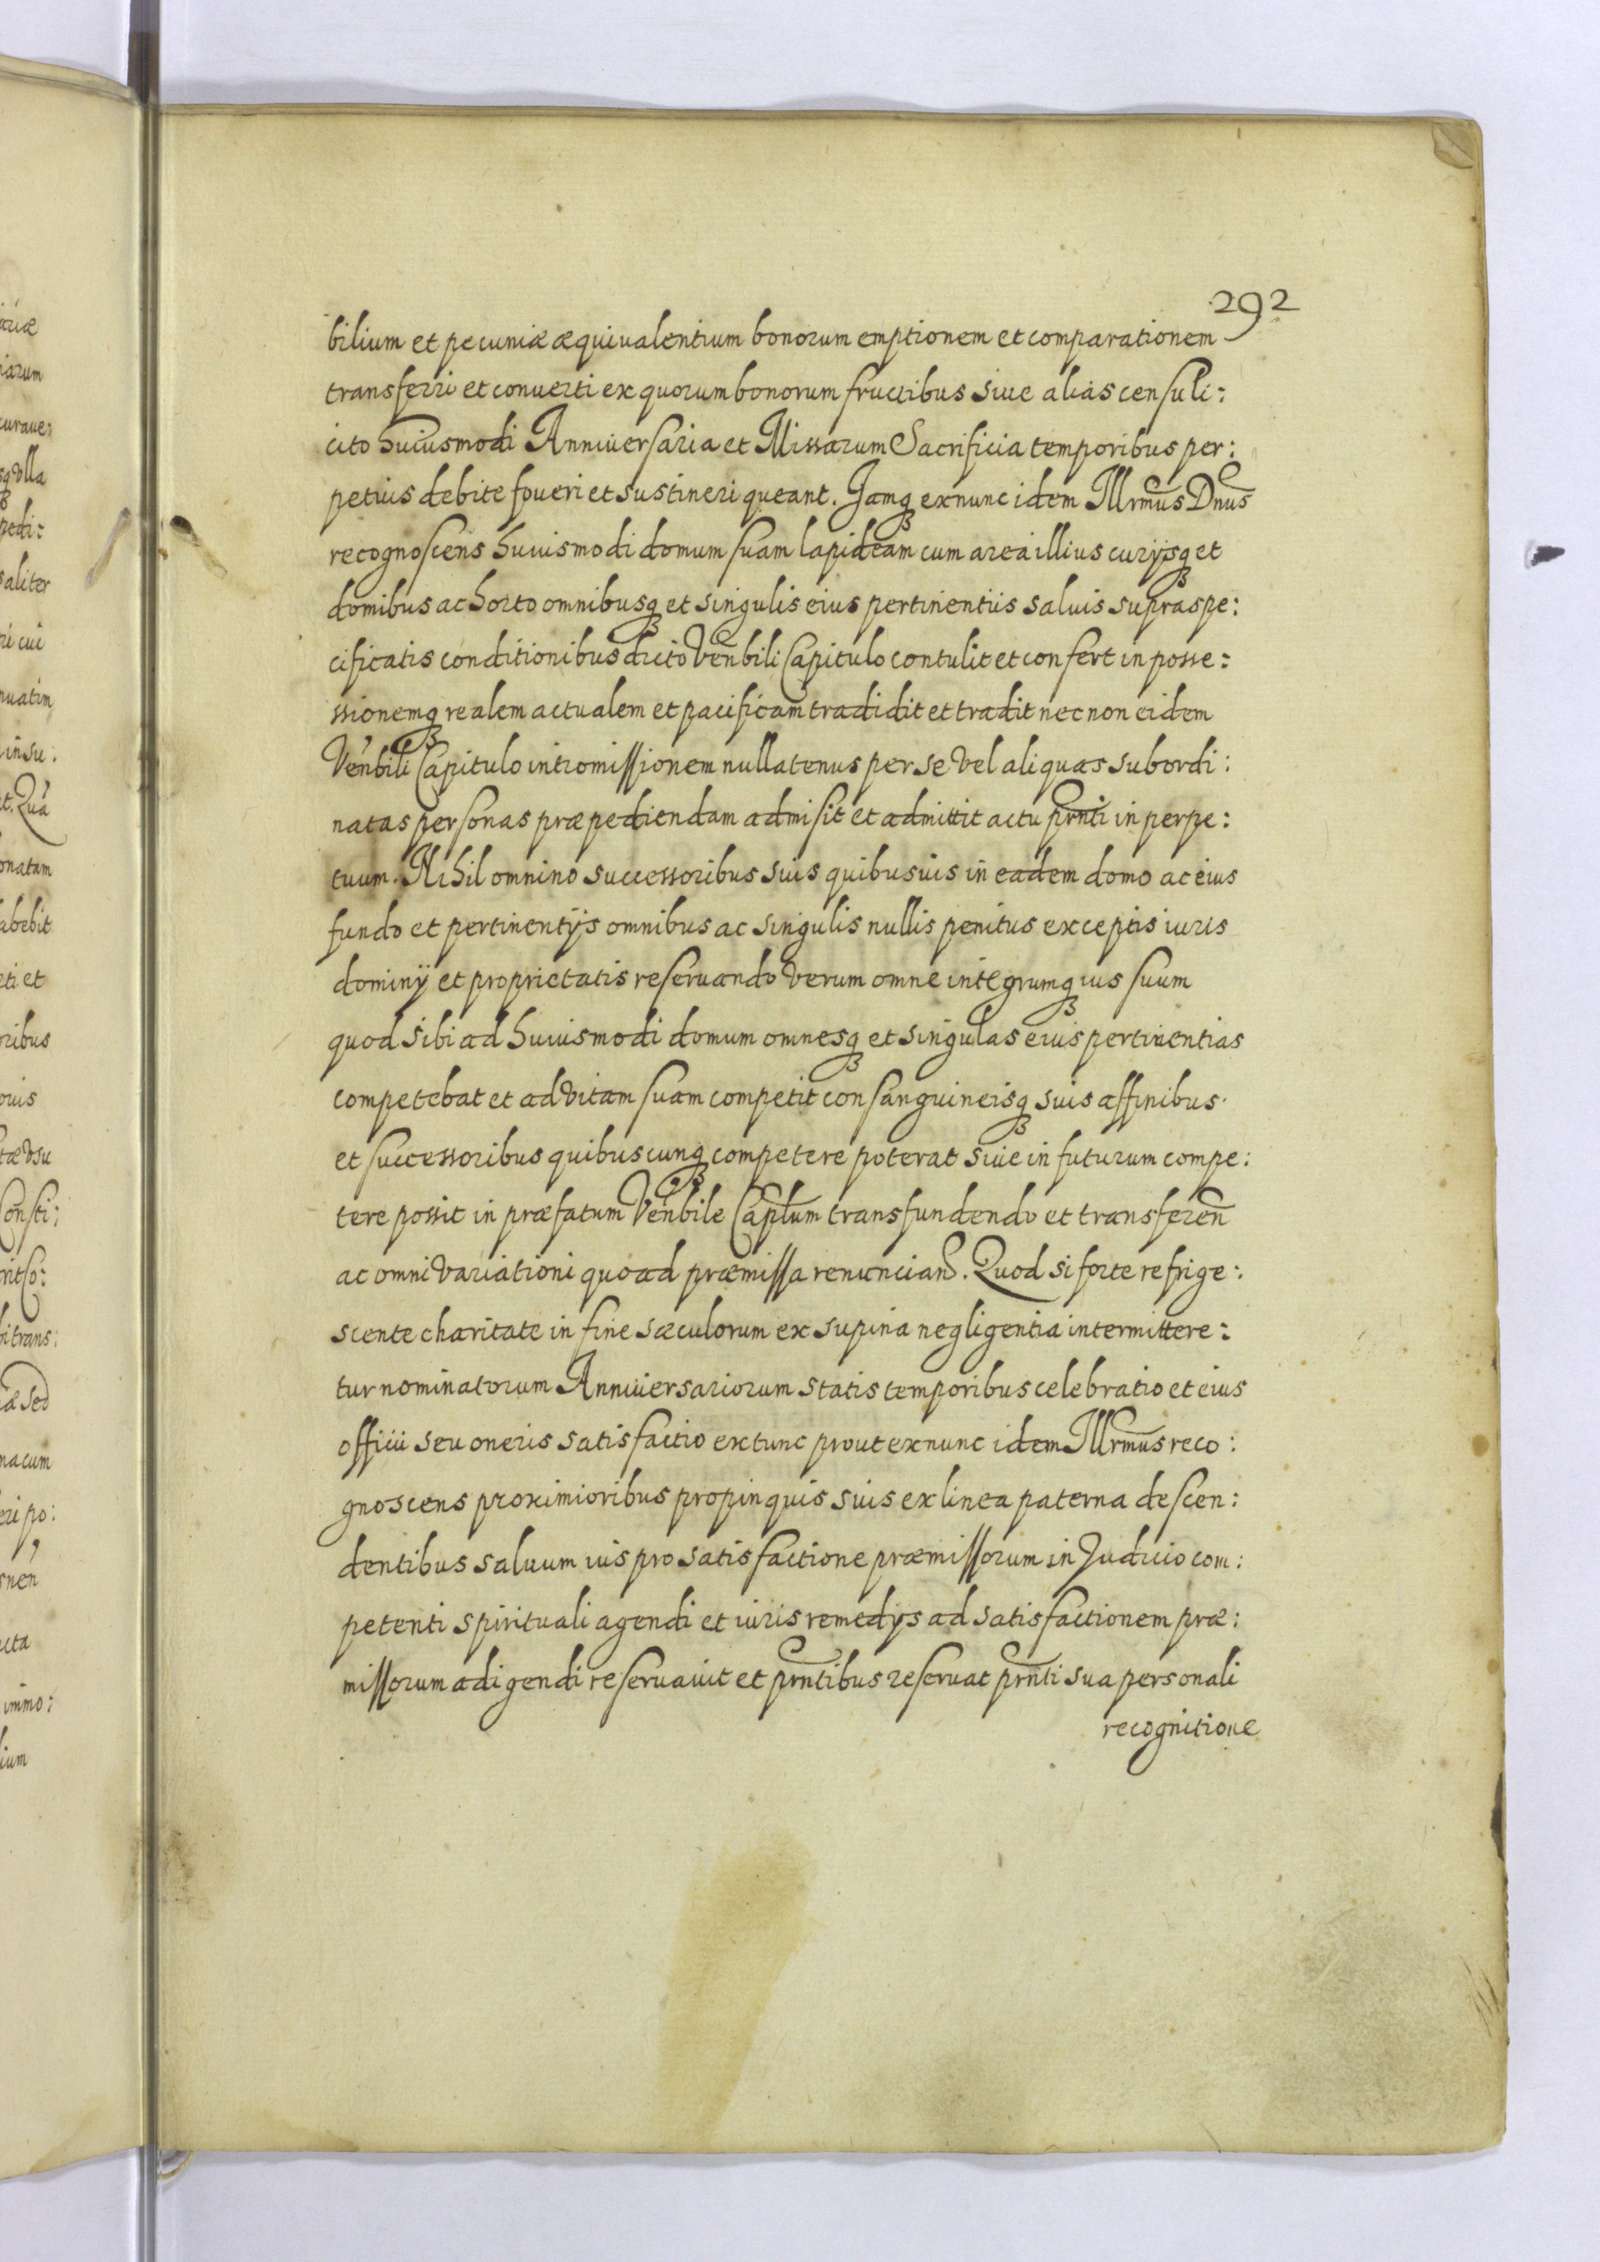 292
bilium et pecuniæ æquiualentium bonorum emptionem et comparationem
transferri et conuerti ex quorum bonorum fructibus siue alias censu li:
cito huiusmodi Anniuersaria et Missarum Sacrificia temporibus per:
petuis debite foueri et sustineri queant. Jamqꝫ ex nunc idem Illrmus Dnus
recognoscens huiusmodi domum suam lapideam cum area illius curijsqꝫ et
domibus ac horto omnibusqꝫ et singulis eius pertinentiis saluis supra spe:
cificatis conditionibus dicto Venbili Capitulo contulit et confert in posse:
ssionemqꝫ realem actualem et pacificam tradidit et tradit nec non eidem
Venbili Capitulo intromissionem nullatenus per se vel aliquas subordi:
natas personas præpediendam admisit et admittit actu prnti in perpe:
tuum. Nihil omnino successoribus suis quibusuis in eadem domo ac eius
fundo et pertinentijs omnibus ac singulis nullis penitus exceptis iuris
dominij et proprietatis reseruando verum omne integrumqꝫ ius suum
quod sibi ad huiusmodi domum omnesqꝫ et singulas eius pertinentias
competebat et ad vitam suam competit consanguineisqꝫ suis affinibus
et successoribus quibuscunqꝫ competere poterat siue in futurum compe:
tere possit in præfatum Venbile Caplum transfundendo et transferen
ac omni variationi quoad præmissa renuncian. Quod si forte refrige:
scente charitate in fine sæculorum ex supina negligentia intermittere:
tur nominatorum Anniuersariorum statis temporibus celebratio et eius
officii seu oneris satisfactio ex tunc prout ex nunc idem Illrmus reco:
gnoscens proximioribus propinquis suis ex linea paterna descen:
dentibus saluum ius pro satisfactione præmissorum in Judicio com:
petenti spirituali agendi et iuris remedijs ad satisfactionem præ:
missorum adigendi reseruauit et prntibus reseruat prnti sua personali
recognitione